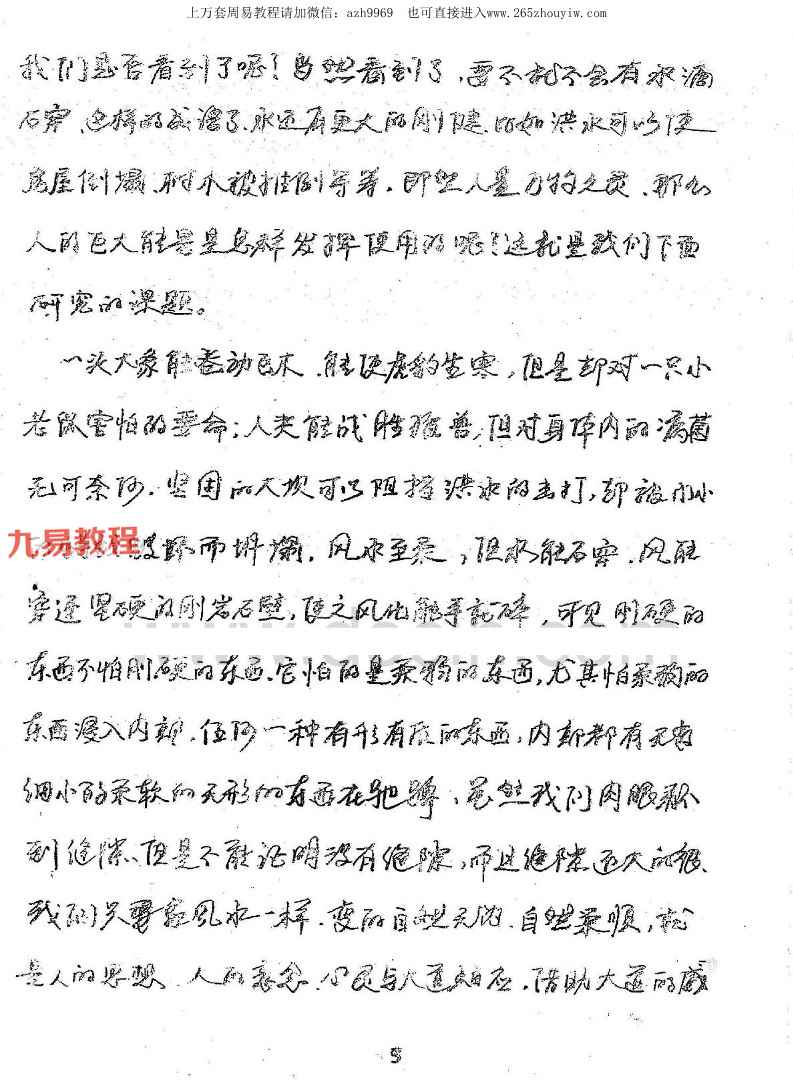 上万套周易教程请加微信：azh9969 也可直接进入www.265zhouyiw.com
我们是否看到了呢！当然看到了，要不就不会有水滴
石穿，这样的成语了.水还有更大的刚健.比如洪水可以使
房屋倒塌.树木被推倒等等.即然人是万物之灵.那么
人的巨大能量是怎样发挥使用的呢！这就是我们下面
研究的课题。
一次大象能卷动巨木.能使虎豹生寒，但是却对一只小
老鼠害怕的要命；人类能战胜猛兽，但对身体内的病菌
无可奈何.坚固的大坝可以阻挡洪水的击打，却被小小
九易教程
而坍塌.风水至柔，但水能石穿.风能
穿透坚硬的刚岩石壁，使之风化，可见刚硬的
东西不怕刚硬的东西.它怕的是柔弱的东西，尤其怕柔弱的
东西浸入内部.任何一种有形有质的东西，内部都有无数
细小的柔软的无形的东西在驰骋、虽然我们肉眼看不
到缝隙、但是不能证明没有缝隙，而且缝隙还大的很.
我们只要象风水一样.变的自然无.自然柔顺，就
是人的思想、人的意念.心灵与大道相应.借助大道的威
5